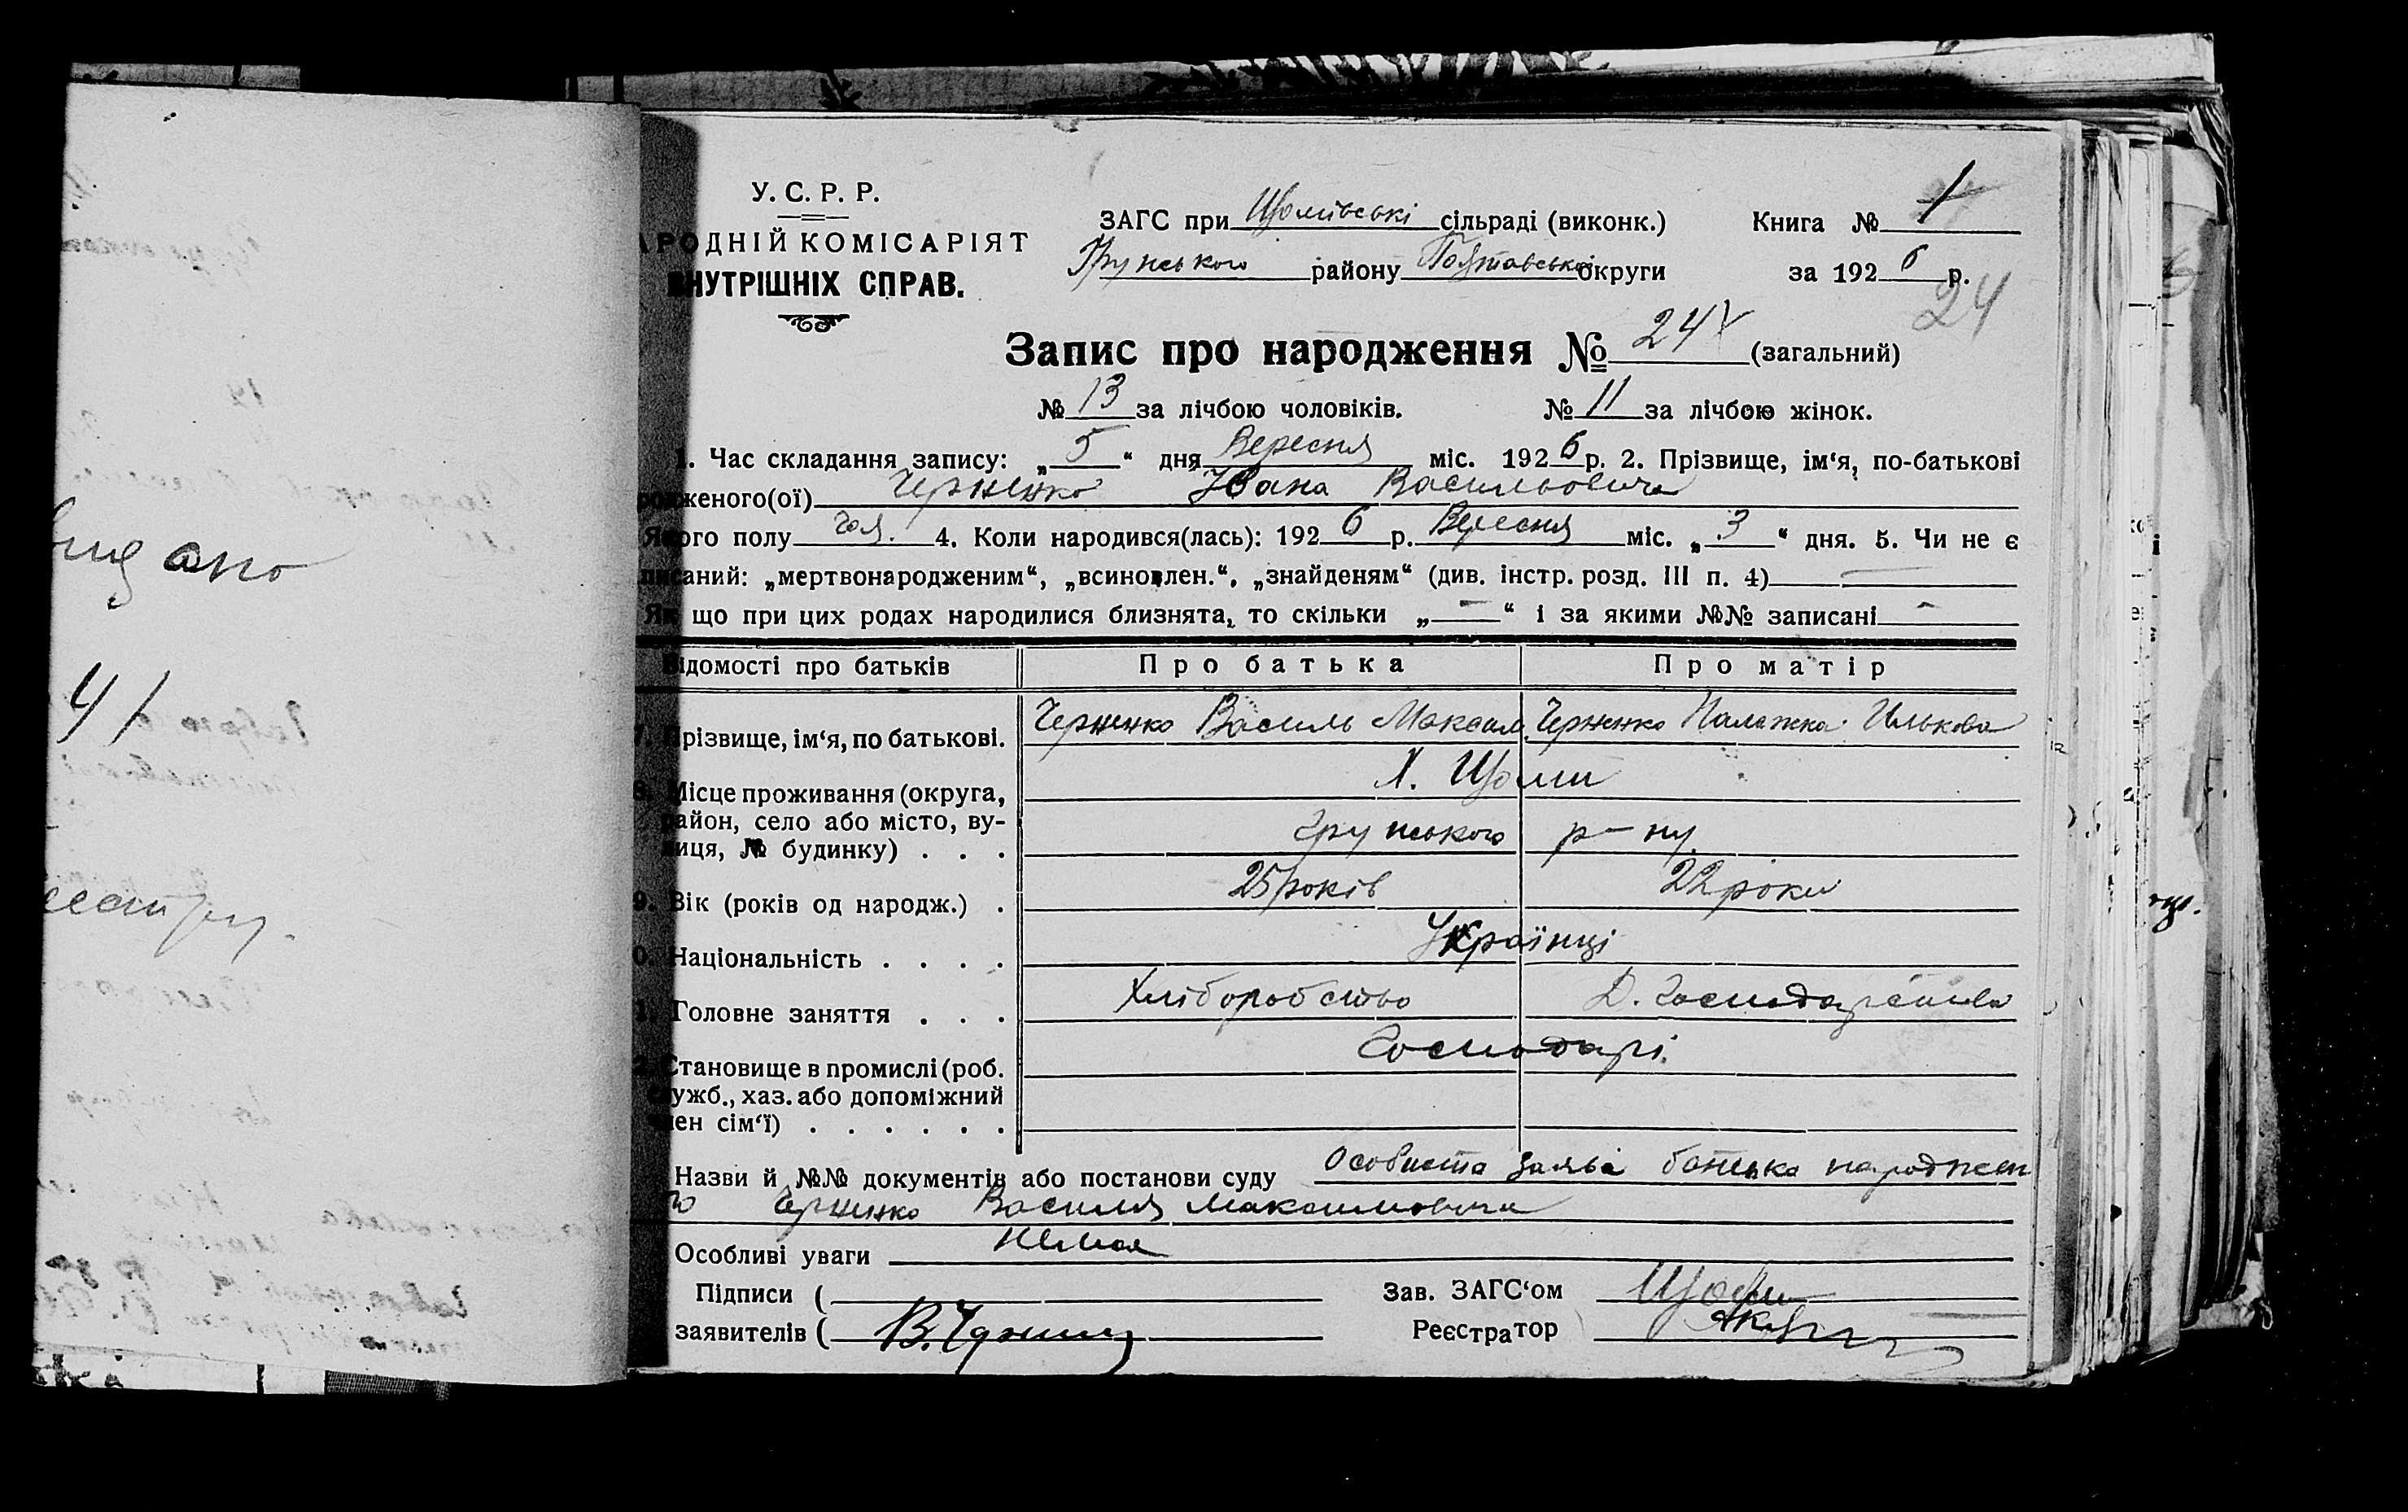 У. С. Р. Р.
АРОДНІЙ КОМІСАРІЯТ
ВНУТРІШНІХ СПРАВ.
ЗАГС при Щомівські сільраді (виконк.) Книга № 1
Грунського району Полтавської округи за 1926 р.
24
Запис про народження № 24 (загальний)
№ 13 за лічбою чоловіків. № 11 за лічбою жінок.
1. Час складання запису: „5“ дня Вересня міс. 1926 р. 2. Прізвище, ім‘я, по-батькові
родженого(ої) Черненко Івана Васильовича
Якого полу чол. 4. Коли народився(лась): 1926 р. Вересня міс. „3“ дня. 5. Чи не є
писаний: „мертвонародженим“, „всиновлен.“, „знайденям“ (див. інстр. розд. III п. 4) —
Як що при цих родах народилися близнята, то скільки „—“ і за якими №№ записані -
Відомості про батьків Про батька Про матір
7. Прізвище, ім‘я, по батькові. Черненко Василь Максим. Черненко Палажка Илькова
8. Місце проживання (округа, Х. Щоми
район, село або місто, ву-
лиця, № будинку) . . . Грунського р-ну.
9. Вік (років од народж.) . 25 років 22 роки
0. Національність . . . . Українці
1. Головне заняття . . . Хліборобство Д. Господарства
2. Становище в промислі (роб. Господарі.
служб., хаз. або допоміжний
член сім‘ї) . . . . . .
Назви й №№ документів або постанови суду Особиста заява батька народжен
го Черненко Василя Максимовича
Особливі уваги Немає
Підписи ( Зав. ЗАГС‘ом
заявителів ( Реєстратор
видано
41